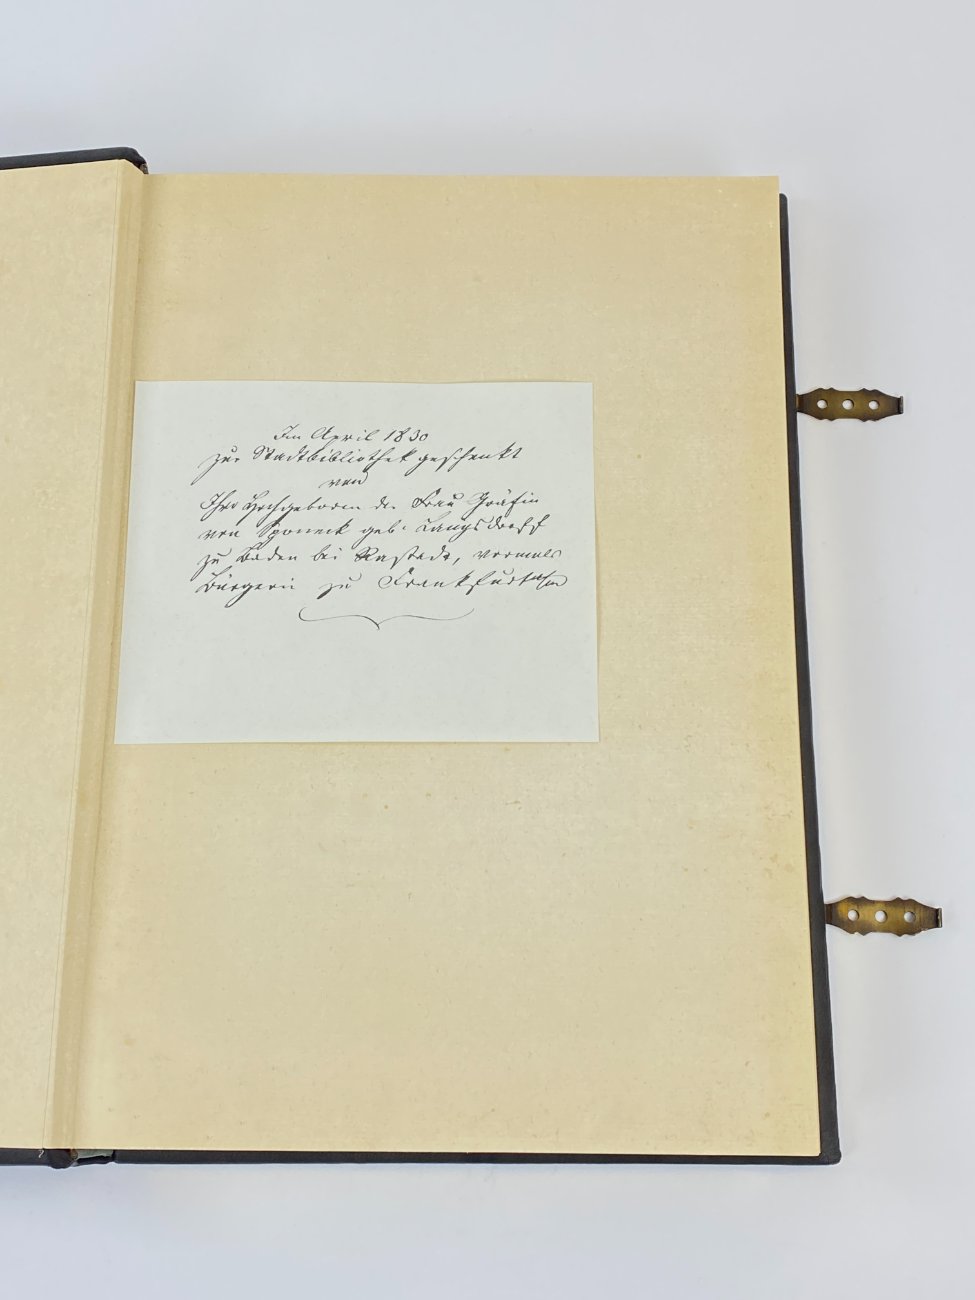 Im April 1830
zur Stadtbibliothek geschenkt
von
Ihro Hochgeboren der Frau Gräfin
von Sponeck geb: Langsdorff
zu Baden bei Rastadt, vormals
Bürgerin zu Frankfurt